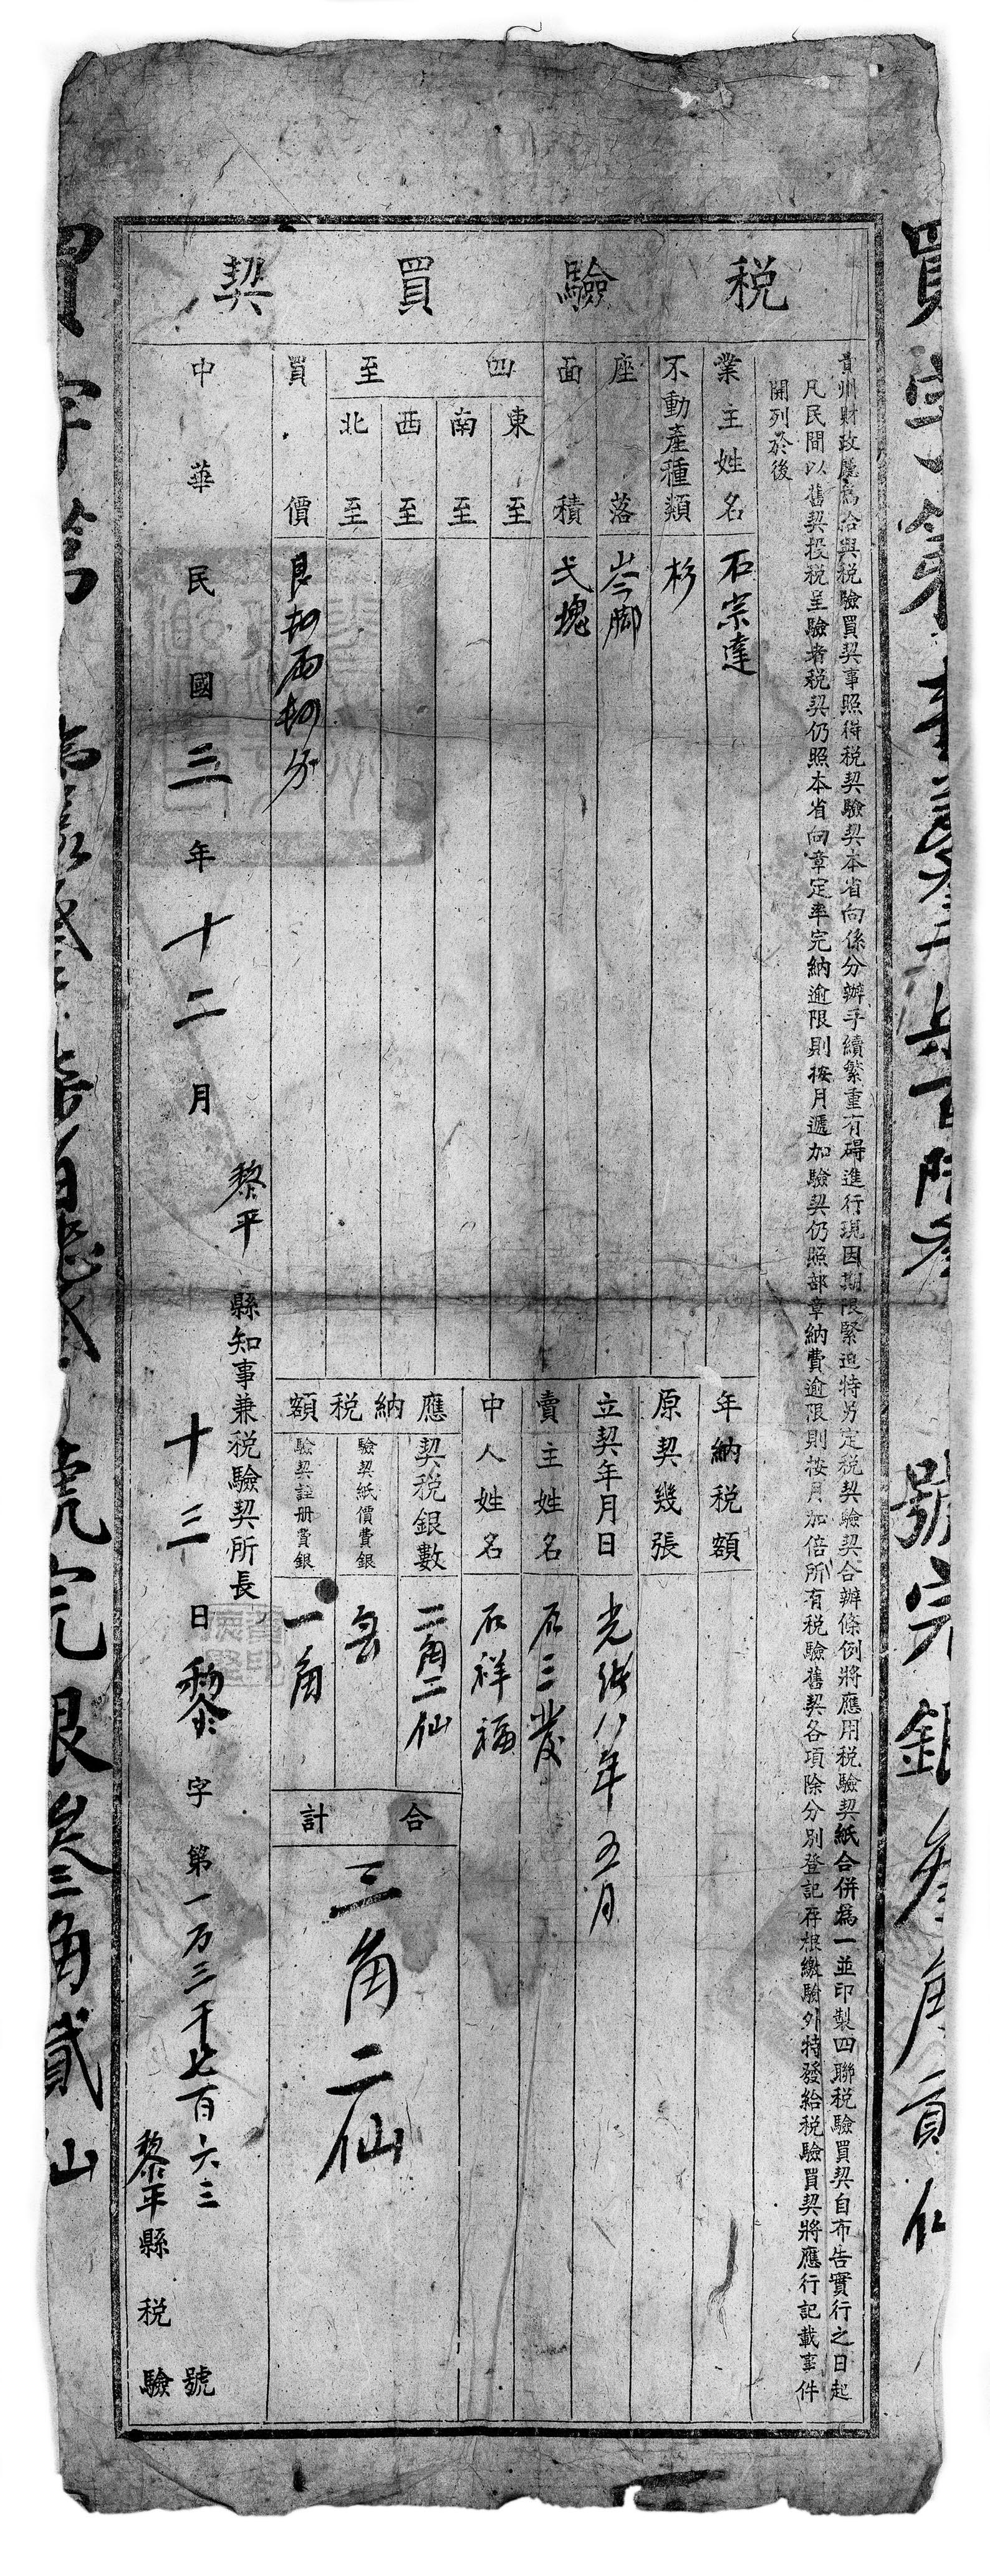 稅驗買契
貴州財政廳為洽與稅驗買契事照得稅契驗契本省向係分辦手續繁重有碍進行現因期限緊迫特另定稅契驗契合辦條例將應用稅驗契紙合併為一並印製四聯稅驗買契自布告實行之日起
凡民間以舊契投稅呈驗者稅契仍照本省向章定率完納逾限則按月遞加驗契仍照部章納費逾限則按月加倍所有稅驗舊契各項除分別登記存根繳驗外特發給稅驗買契將應行記載事件
開列於後
業主姓名 石宗達
不動產種類 杉
座落 岑脚
面積 弍塊
四至
東至
南至
西至
北至
買價 艮拟兩拟分
年納稅額
原契幾張
立契年月日 光緒八年五月
賣主姓名 石三發
中人姓名 石祥福
應納稅額
契稅銀數 二角二仙
驗契紙價費銀
驗契註册費銀 一角
合計 三角二仙
黎平縣知事兼稅驗契所長
中華民國三年十二月十三日黎字第一万三千七百六三號
黎平縣稅驗
號完銀叁角貳仙
號完銀叁角貳仙